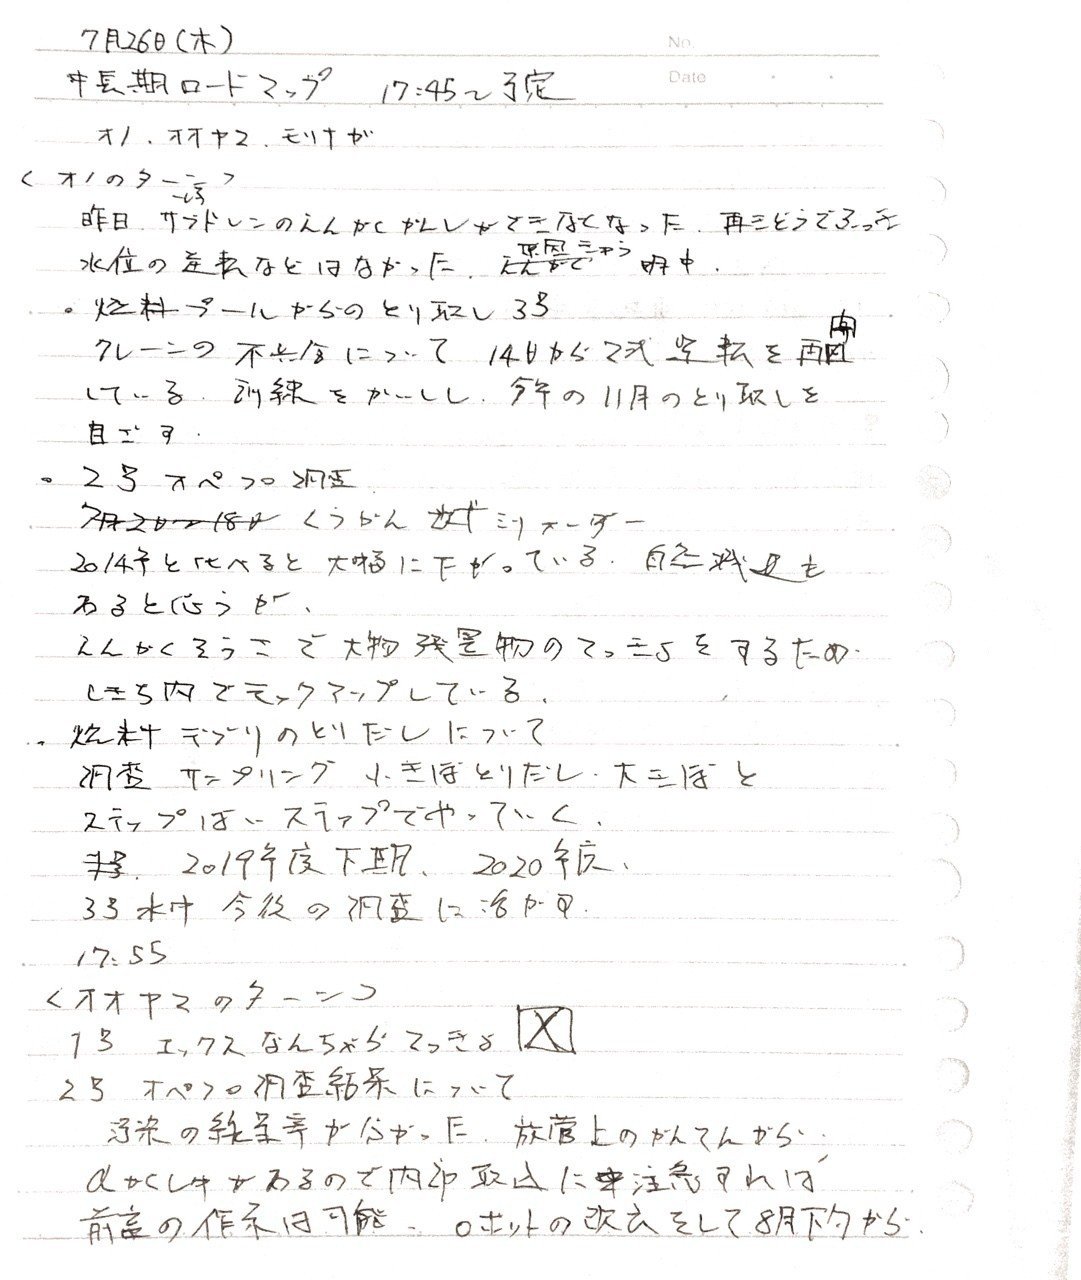 No.
Date
7月26日(木)
中長期ロードマップ 17:45〜予定
オノ、オオヤマ、モリナガ
<オノのターン>
1〜4号
昨日、サブドレンのえんかくかんしができなくなった。再きどうでふっき
水位の逆転などはなかった。原因 きゅう明中。
・燃料プールからのとり取し 3号
クレーンの不具合について 14日から 運転を再開
している。訓練をかいしし、今年の11月のとり取しを
目ざす。
・2号オペフロ調査
7月2日〜18日 くうかん ミリオーダー
2014年と比べると大幅に下がっている。自然減衰も
あると思うが、
えんかくそうさで大物残置物のてっきょをするため
しきち内でモックアップしている。
・燃料デブリのとりだしについて
調査 サンプリング 小きぼとりだし、大きぼと
ステップばいステップでやっていく。
2019年度下期、2020年度、
3号水中 今後の調査に活かす。
17:55
<オオヤマのターン>
1号 エックスなんちゃらてっきょ X
2号 オペフロ調査結果について
汚染の 分かった。放管上のかんてんから
αかくしゅがあるので内部取込に注意すれば
前室の作業は可能。ロボットの改良をして8月下旬から。